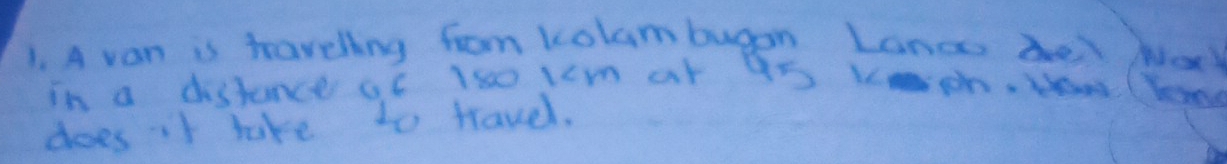 1. A van is travelling from Kolambugan Lanao del Nor
in a distance of 180 km at 95 kph. How long
does it take to travel.